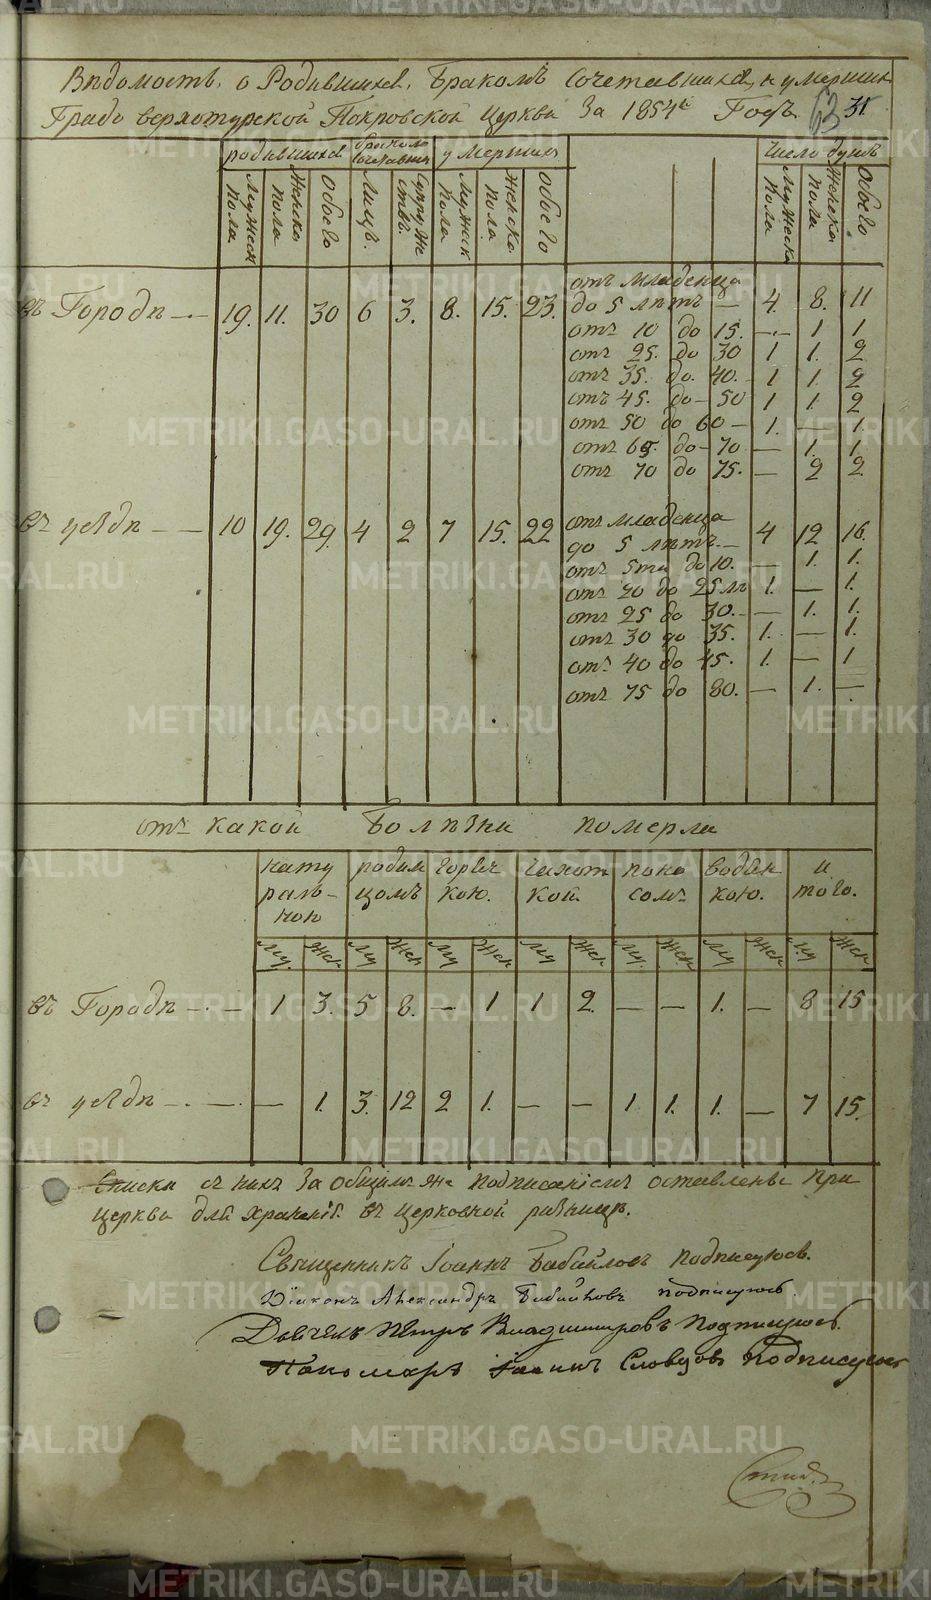 Вѣдомость, о Родившихся, Бракомъ Сочетавшихся, и умершихъ
Града Верхотурской Покровской Церкви За 1854й Годъ 63 31.
родившихся бракомъ сочетавшихся умершихъ число душъ
Мужеск пола Женска пола Обоего Лицъ. Супружествъ. Мужик пола Женска пола. Обоего Мужеска пола Женска пола Обоего
въ Городѣ — 19. 11. 30 6 3. 8. 15. 23.
отъ младенца
до 5 лѣтъ — 4. 8. 11
отъ 10 до 15. — 1 1
отъ 25. до 30 1 1. 2
отъ 35. до. 40. 1 1. 2
отъ 45. до 50 1 1. 2
отъ 50 до 60 — 1. — 1.
отъ 65. до 70 — 1. 1.
отъ 70 до 75. — 2 2
въ уѣздѣ — — 10 19. 29. 4 2 7 15. 22
отъ младенца
до 5 лѣтъ. — 4 12 16.
отъ 5ти до 10. — 1. 1.
отъ 20 до 25 лѣ 1. — 1.
отъ 25 до 30. — 1. 1.
отъ 30 до 35. 1. — 1.
отъ 40 до 45. 1. — 1
отъ 75 до 80. — 1. —
отъ какой болѣзни померли
натуральною родимцомъ горячкою. чахоткой. поносомъ водянкою. итого.
Му. Жен Му Жен Му Жен Му Жен Му. Жен Му Жен Му Жен
въ Городѣ — 1 3. 5 8. — 1 1 2. — — 1. — 8 15
въ уѣздѣ — — 1. 3. 12 2 1. — — 1 1. 1. — 7 15.
Списки съ нихъ За общимъ же подписаніемъ оставлены при
церкви для храненія въ церковной ризницѣ.
Священникъ Іоаннъ Бабайловъ подписуюсь.
Діаконъ Александръ Бабайловъ подписуюсь.
Дьячекъ Петръ Владимировъ Подписуюсь.
Пономарь Іоаннъ Словцовъ Подписуюсь
METRIKI.GASO-URAL.RU